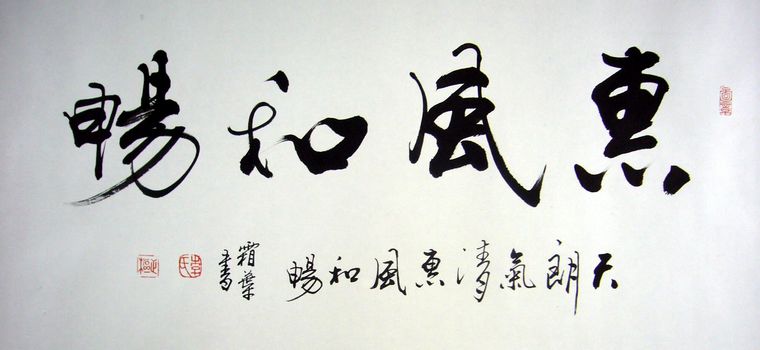 惠風和暢
天朗氣清惠風和暢
霜葉
書